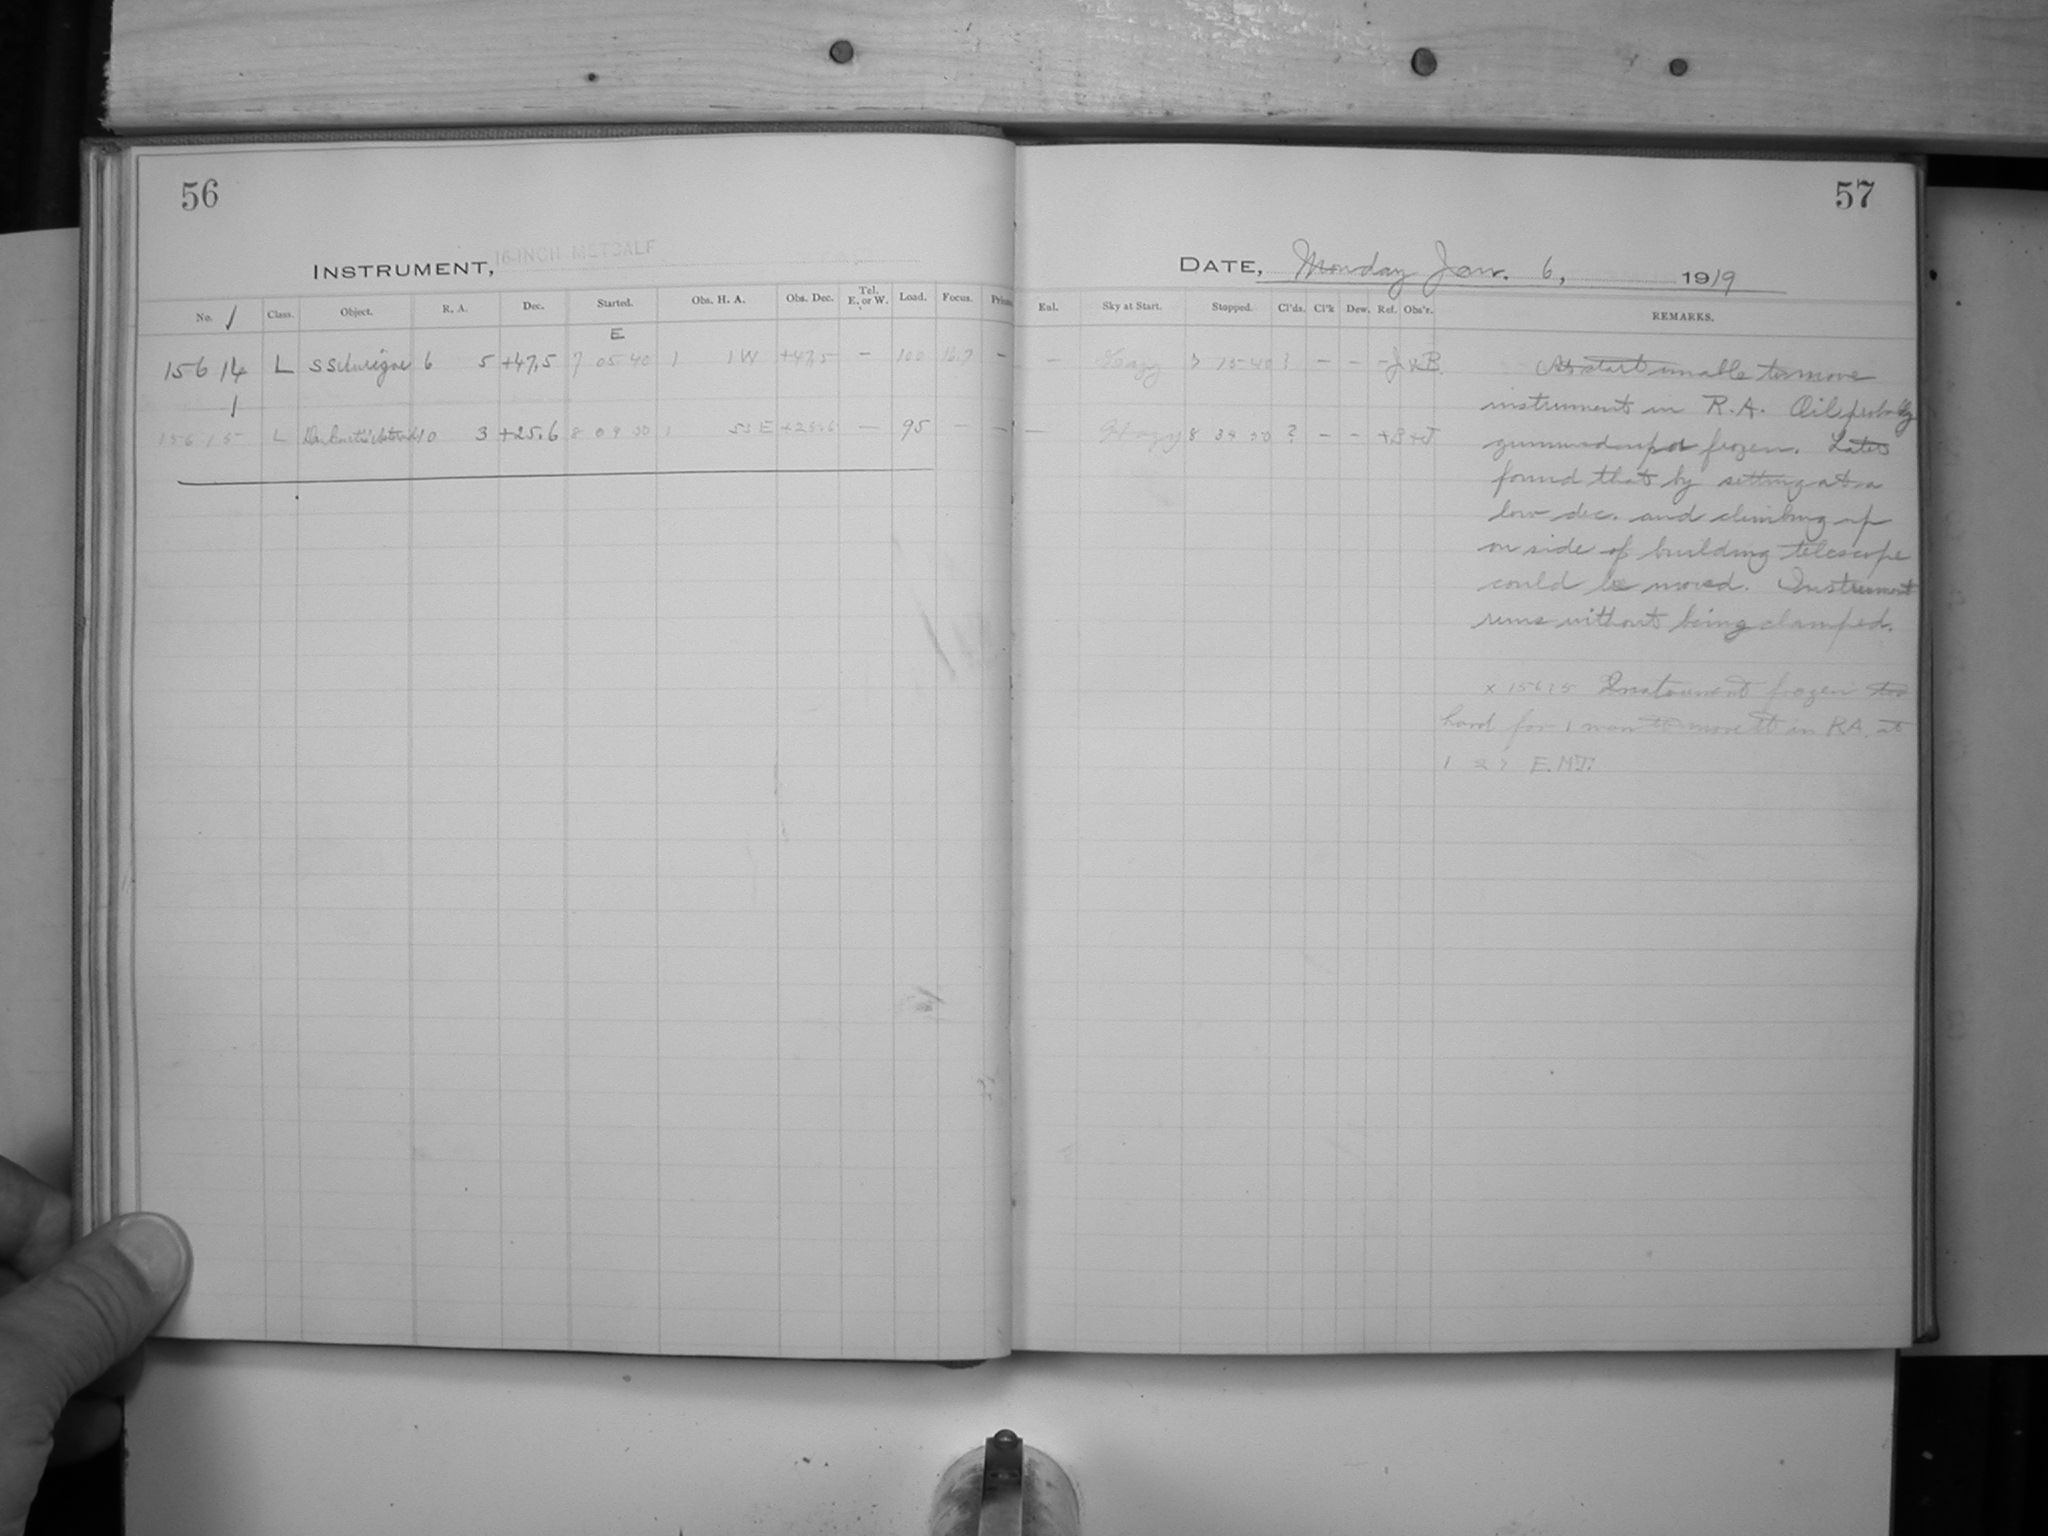 56
INSTRUMENT, 16-INCH METCALF
No. Class. Object. R. A. Dec. Started. Obs. H. A. Obs. Dec. Tel. E. or W. Load. Focus.
E
15614 L SS Aurigae 6 5 +47,5 7 05 40 1 1 W +47,5 – 100 16.7 –
15615 L 10 3 +25.6 8 09 30 1 53 E +25.6 – 95 – –
57
DATE, Monday Jan. 6, 1919
Enl. Sky at Start. Stopped. Cl'ds. Cl'k Dew. Ref. Obs'r. REMARKS.
– Hazy 7 15 40 ? – – – J x B.
– Hazy 8 39 30 ? – – +B+J
At start unable to move
instrument in R.A. Oil probably
gummed up or frozen. Later
found that by setting at a
low dec. and climbing up
on side of building telescope
could be moved. Instrument
runs without being clamped.
x 15615 Instrument frozen too
hard for 1 man to move it in RA. at
1 E.M.T.